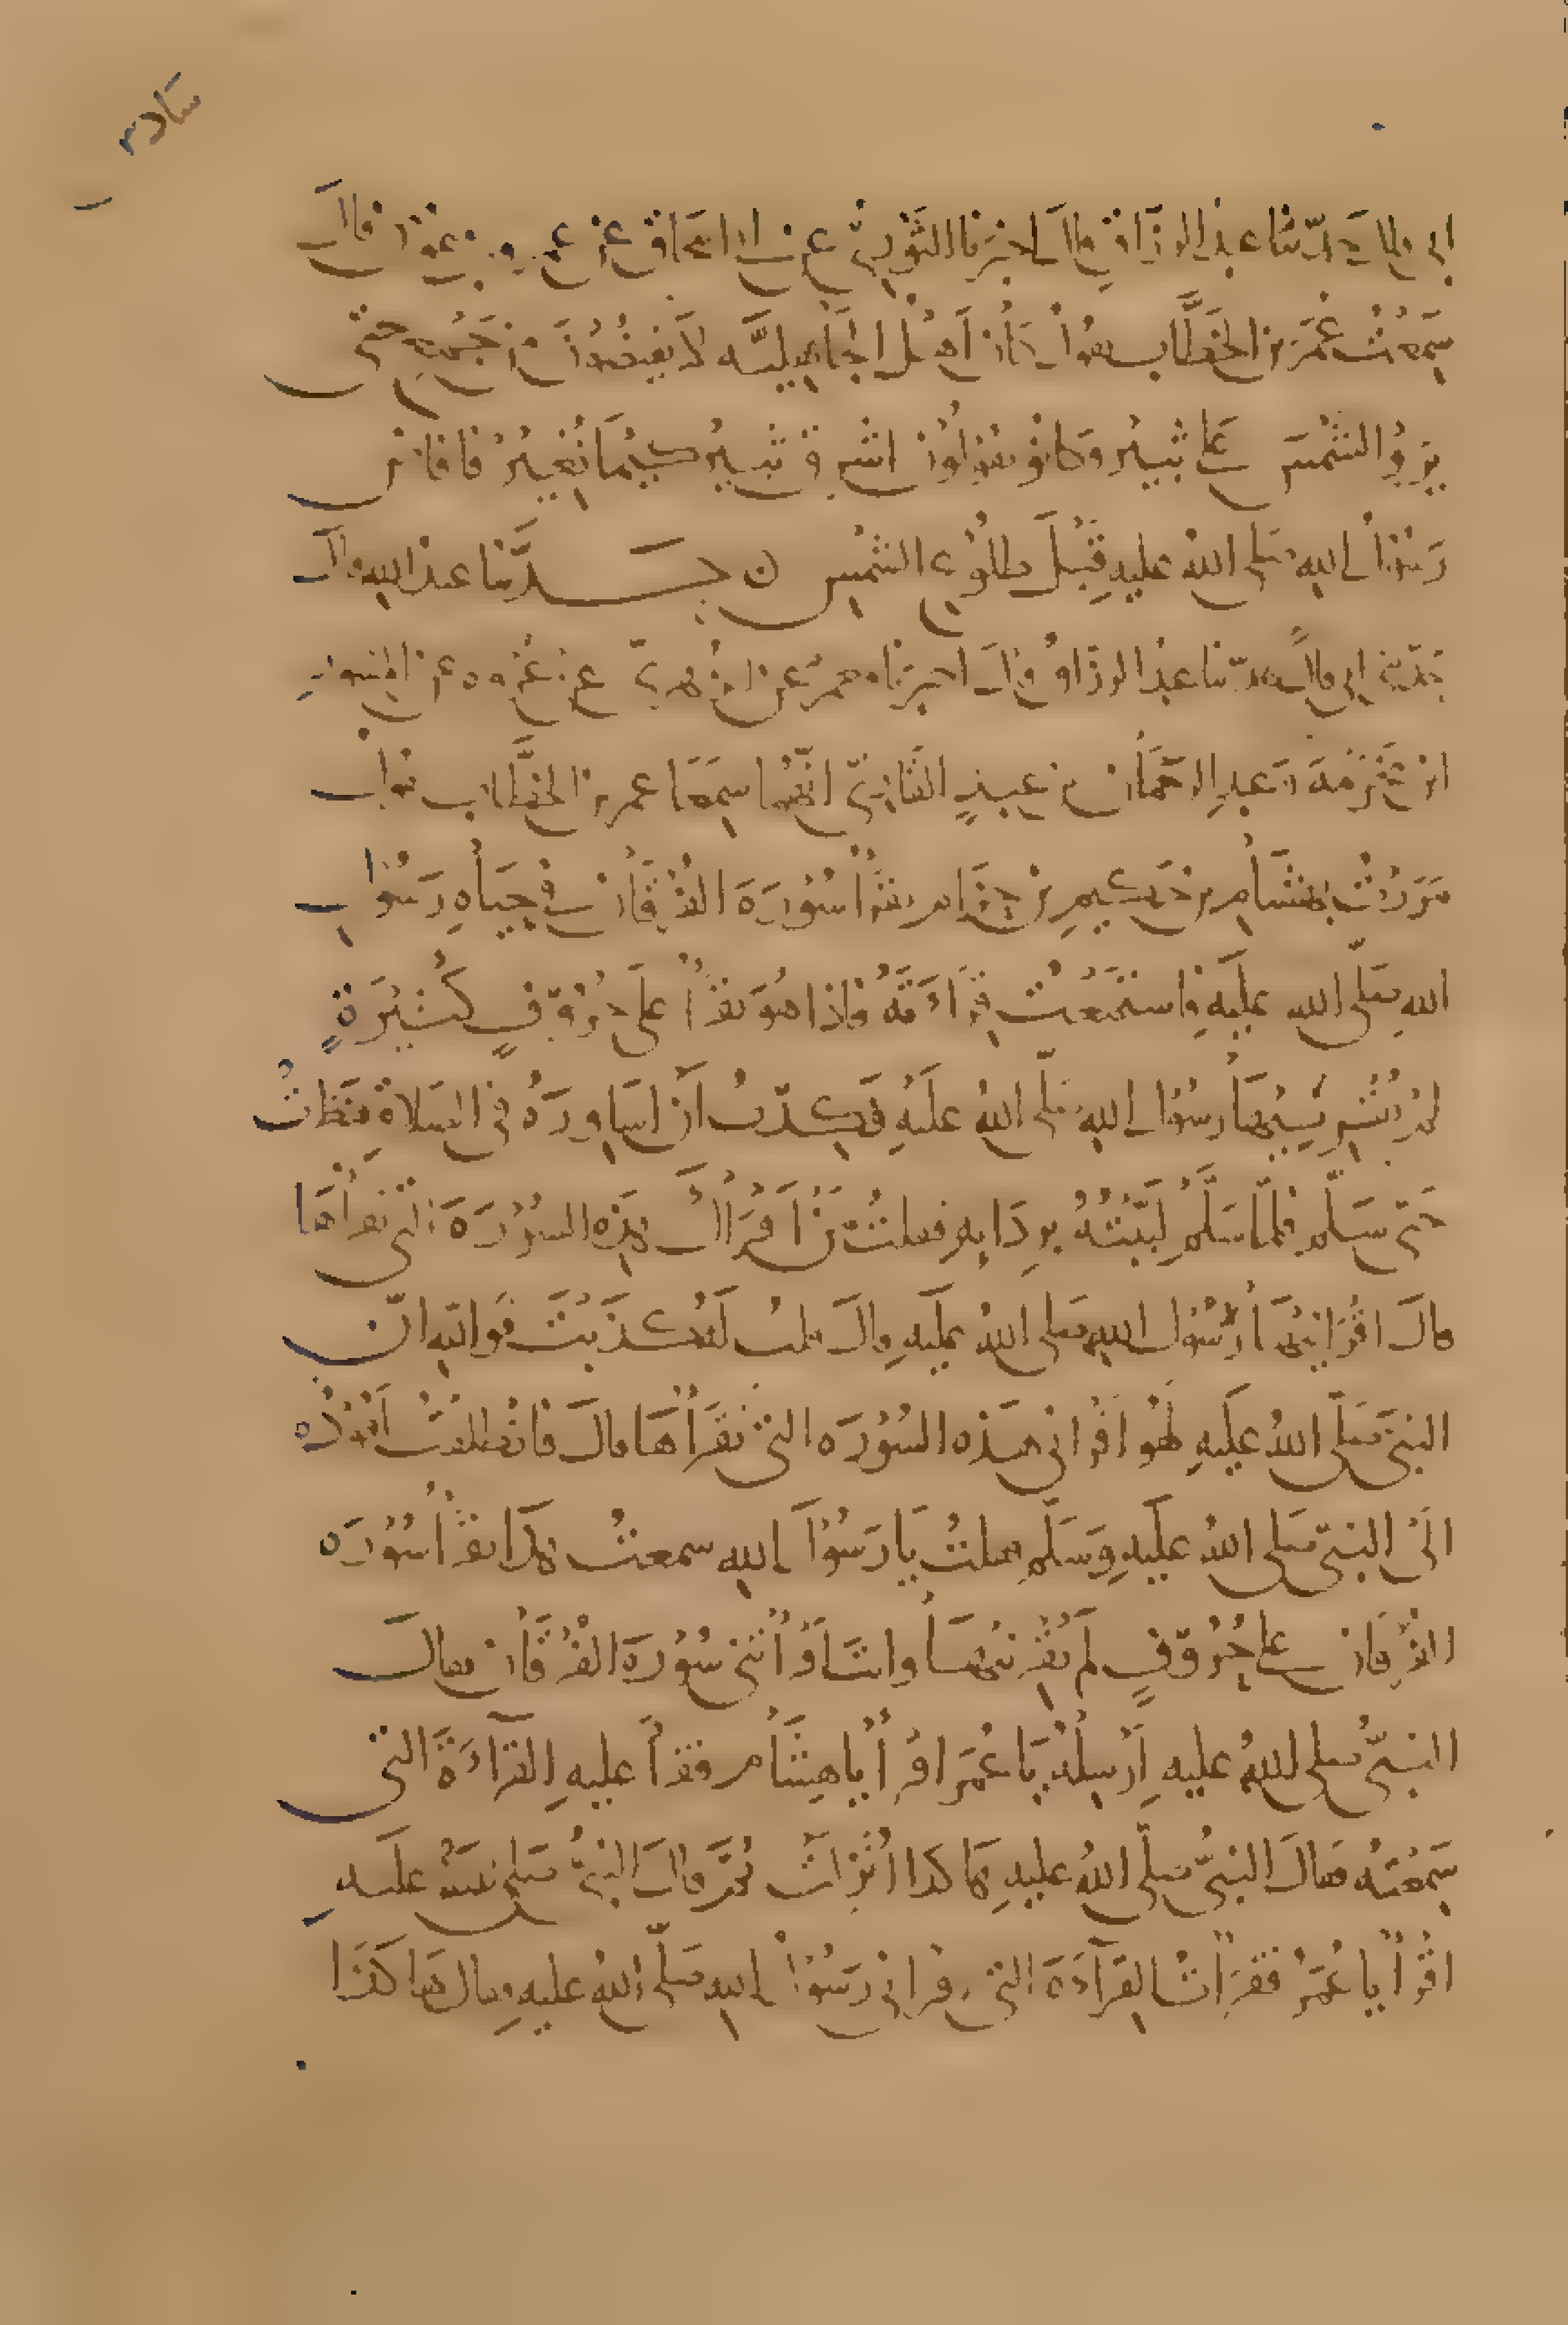 سادس
ابى قال حدّثنا عبد الرزاق قال اخبرنا الثوريّ عن ابى اسحاق عن عمرو بن ميمون قال
سَمِعْتُ عُمَرَ بن الخطَّاب يقول كان اَهْل الجَاهِليَّه لا يفيضُونَ من جَمْعٍ حتى
يرَوُا الشمْسَ على ثبيْر وكانوا يقولون اشرق ثبيرُ كيْمَا نُغيْرُ فافاض
رَسُوْل اللهِ صلى اللهُ عليهِ قبْلَ طلُوْعِ الشمْسِ ن حَدَّثنا عبد الله قال
حدّثنى ابى قال حدّثنا عبد الرزاق قال اخبرنا معمرُ عن الزهريّ عن عُرْوه عن المِسْوَرِ
ابن مَخْرَمَةَ وَعبدِ الرحْمَان بن عبدٍ القَارِيّ انّهُمَا سَمِعَا عمر بن الخطَّاب يقول
مَرَرْتُ بهشَام بن حَكيمِ بن حِزَام يقرَأُ سُوْرَةَ الفُرْقَان فى حَيَاهِ رَسُوْل
اللهِ صَلّى الله عليَهِ فاستَمَعْتُ قِرَاءَتَهُ فاذا هُوَ يقرَأُ على حُرُوْفٍ كَثيْرَةٍ
لم يُقْرِئنيْهَا رسُوْل اللهِ صَلّى اللهُ علَيهِ فَكدتُ اَن اُسَاوِرَهُ فى الصَلاةِ فنَظرتُ
حَتى سَلّم فلمّا سَلّمَ لَبّبْتُهُ بردَايه فقلتُ مَنْ اَقرَاَكَ هذه السُوْرَةَ التى تقرَأُهَا
قالَ اقرَانيْهَا رَسُوْل اللهِ صلى اللهُ عليَهِ قالَ قلتُ لَهُ كذَبْتَ فَوالله انّ
النبىَّ صَلّى اللهُ عليَهِ لهُوَ اَقْرَانى هَذه السُوْرَه التى تقرَأُهَا قالَ فانْطلقتُ اَقُوْدُه
الَى النبىّ صلى اللهُ عليَهِ وَسَلّم فقلتُ يَا رَسُوْلَ اللهِ سمعتُ هذَا يقرَأُ سُوْرَه
الفرْقان على حُرُوْفٍ لم تُقْرِئنيْهَا وانتَ اَقْرَأْتَنى سُوْرَةَ الفُرْقَان فقالَ
النبىُّ صلى اللهُ عليهِ اَرْسِلْهُ يَا عُمَر اقْرأْ يا هِشَام فقرَأَ عليهِ القرَآءَةَ التى
سَمِعْتُه فقالَ النبىُّ صلّى اللهُ عليهِ هَا كذا اُنْزِلَتْ ثُمَّ قالَ النبىُّ صَلى اللهُ عليَهِ
اقْرأْ يا عُمَرُ فقرَأْتُ القرَآءَةَ التى اَقرانى رَسُوْل اللهِ صلَّى اللهُ عليهِ فقال هَا كذَا